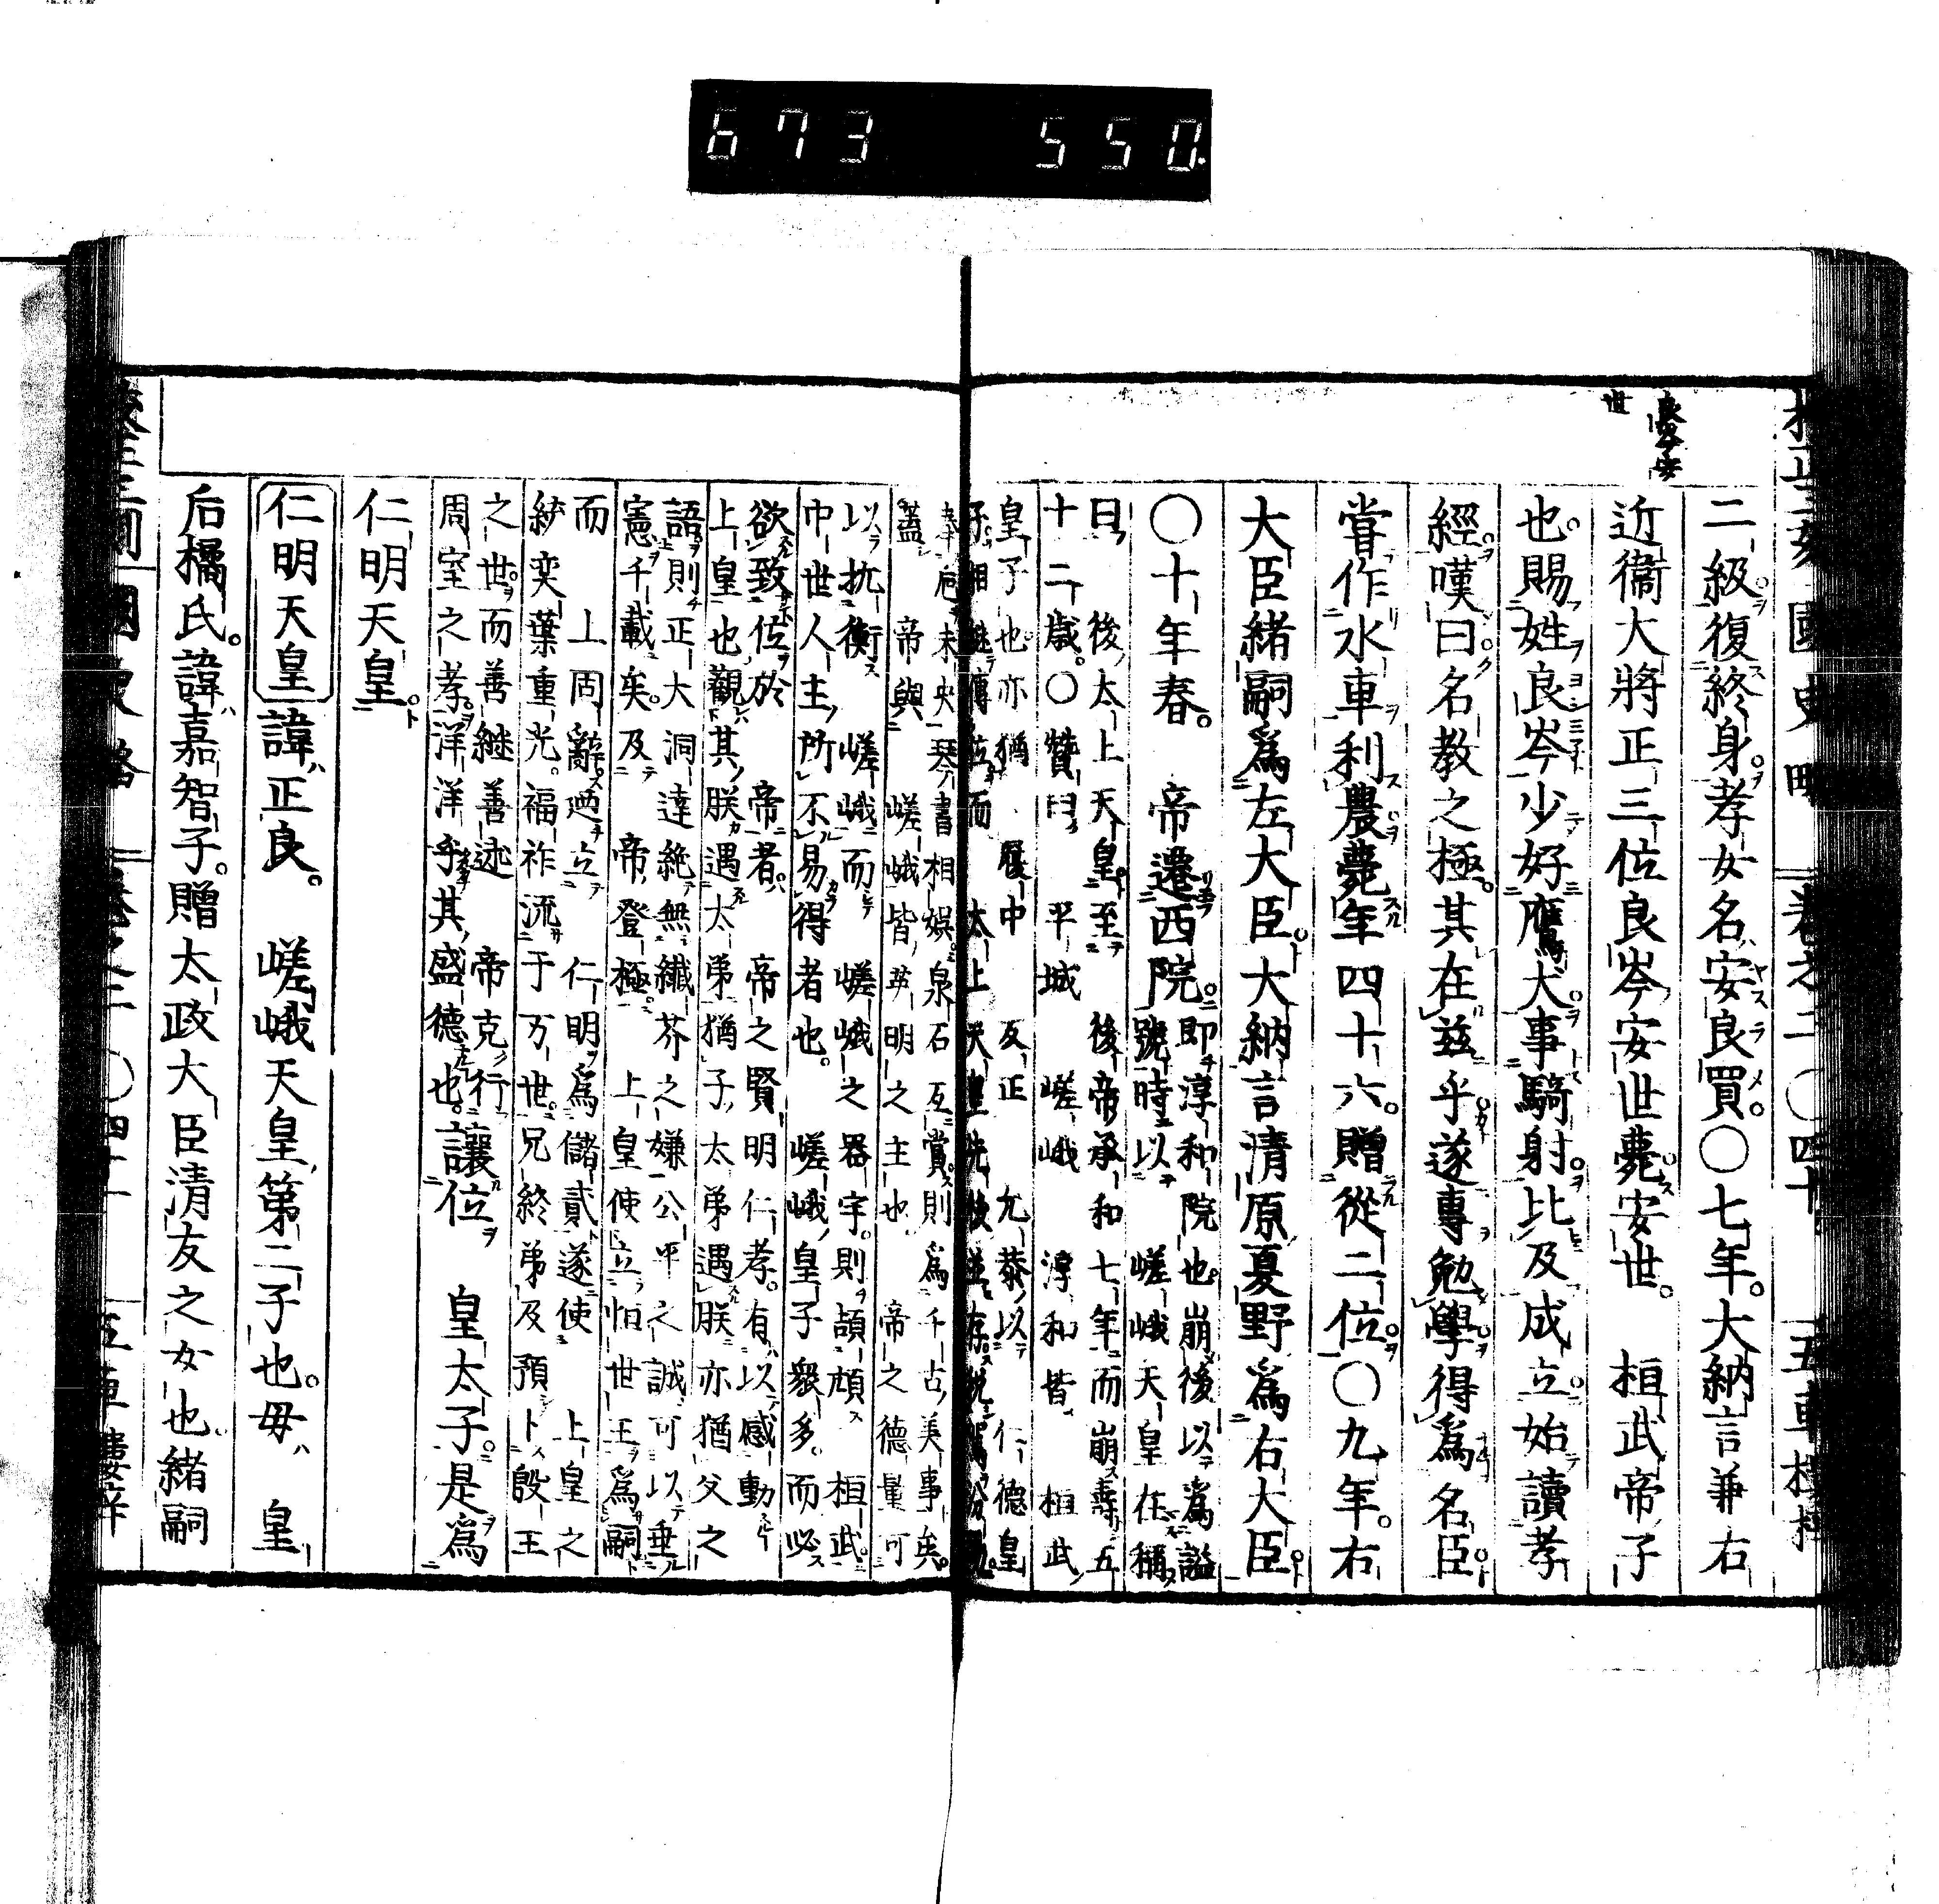 673 550
二級復終身孝女名安良買○七年大納言兼右
近衞大將正三位良岑安世薨安世 桓武帝子
也賜姓良岑少好鷹犬事騎射比及成立始讀孝
經嘆曰名教之極其在茲乎遂專勉學得爲名臣
甞作水車利農薨年四十六贈從二位○九年右
大臣緒嗣爲左大臣大納言清原夏野爲右大臣
○十年春 帝遷西院
即淳和院也崩後以爲謚
號時以 嵯峨天皇在稱
曰 後太上天皇至 後帝承和七年而崩壽五
十二歲○贊曰 平城 嵯峨 淳和皆 桓武
皇子也亦猶 履中 反正 允恭以 仁德皇
子相繼傳位而 太上天皇
未央琴書相娯泉石互賞則爲千古美事矣
蓋 帝與 嵯峨皆英明之主也 帝之德量可
以抗衡 嵯峨而 嵯峨之器宇則頡頏 桓武
中世人主所不易得者也 嵯峨皇子衆多而必
欲致位於 帝者 帝之賢明仁孝有以感動
上皇也觀其朕遇太弟猶子太弟遇朕亦猶父之
語則正大洞達絶無纖芥之嫌公平之誠可以垂
憲千載矣及 帝登極 上皇使立恒世王爲嗣
而 上固辭迺立 仁明爲儲貳遂使 上皇之
統奕葉重光福祚流于万世兄終弟及預卜殷王
之世而善繼善述 帝克行
周室之孝洋洋乎其盛德也
讓位 皇太子是爲
仁明天皇
仁明天皇 諱正良 嵯峨天皇第二子也母 皇
后橘氏諱嘉智子贈太政大臣清友之女也緒嗣